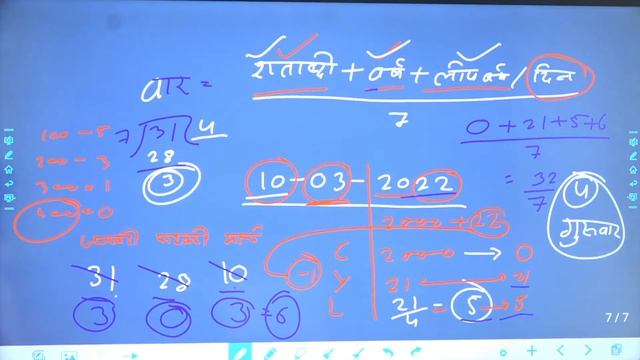 वार = शताब्दी + वर्ष + लीप वर्ष / दिन
7
100 - 5
200 - 3
300 - 1
400 - 0
7) 31 ( 4
28
3
0 + 21 + 5 + 6
7
= 32
7
4
गुरुवार
10 - 03 - 2022
2000 + 22
-1
C 2000 → 0
Y 21 → 21
L 21/4 = 5 → 5
जनवरी फरवरी मार्च
31 28 10
3 0 3 = 6
7/7